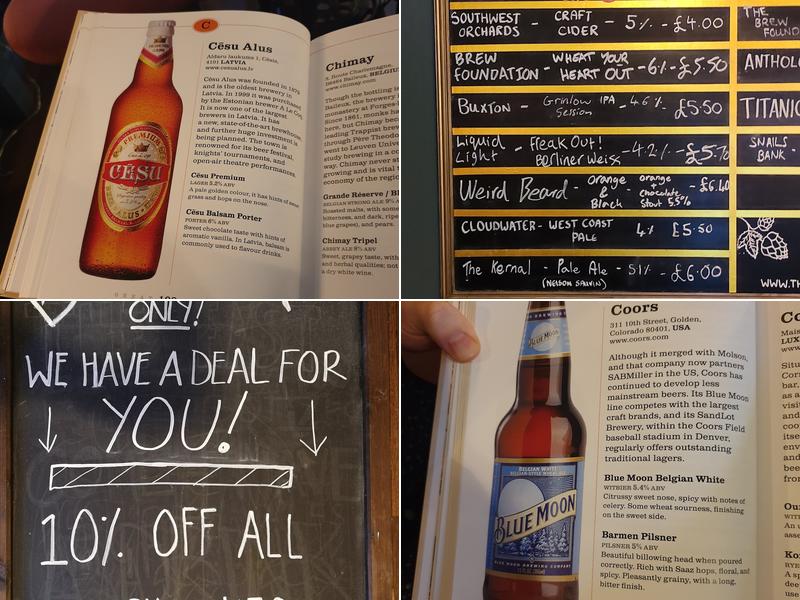 C
Cēsu Alus
Aldaru laukums 1, Cēsis,
4101 LATVIA
www.cesualus.lv
Cēsu Alus was founded in 1878
and is the oldest brewery in
Latvia. In 1999 it was purchased
by the Estonian brewer A Le Coq.
It is now one of the largest
brewers in Latvia. It has
a new, state-of-the-art brewhouse,
and further huge investment is
being planned. The town is
renowned for its beer festival,
knights' tournaments, and
open-air theatre performances.
Cēsu Premium
LAGER 5.2% ABV
A pale golden colour, it has hints of
grass and hops on the nose.
Cēsu Balsam Porter
PORTER 6% ABV
Sweet chocolate taste with hints of
aromatic vanilla. In Latvia, balsam is
commonly used to flavour drinks.
PREMIUM
CĒSU
Chimay
www.chimay.com
Though the bottling
Bailleux, the brewery
monastery at Forges-
Since 1861, monks ha
here, but Chimay bec
leading Trappist brew
through Père Theodo
went to Leuven Unive
study brewing in a co
way. Chimay never st
growing and is vital
economy of the regio
Grande Réserve / Bl
BELGIAN STRONG ALE 9% A
Roasted malts, with some
bitterness, and dark, ripe
blue grapes), and pears.
Chimay Tripel
ABBEY ALE 8% ABV
Sweet, grapey taste, with
and herbal qualities; not
a dry white wine.
SOUTHWEST ORCHARDS - CRAFT CIDER - 5% - £4.00
BREW FOUNDATION - WHEAT YOUR HEART OUT - 6% - £5.50
BUXTON - Grinlow IPA Session - 4.6% - £5.50
Liquid Light - Freak Out! Berliner Weiss - 4.2% - £5.70
Weird Beard - Orange & Black - orange chocolate stout 5.5% - £6.40
CLOUDWATER - WEST COAST PALE 4% £5.50
The Kernal - Pale Ale - 5.1% - £6.00
(NELSON SAUVIN)
THE BREW FOUND
ANTHOL
TITANIC
SNAILS BANK -
WWW.TH
ONLY!
WE HAVE A DEAL FOR
YOU!
10% OFF ALL
Coors
311 10th Street, Golden,
Colorado 80401, USA
www.coors.com
Although it merged with Molson,
and that company now partners
SABMiller in the US, Coors has
continued to develop less
mainstream beers. Its Blue Moon
line competes with the largest
craft brands, and its SandLot
Brewery, within the Coors Field
baseball stadium in Denver,
regularly offers outstanding
traditional lagers.
Blue Moon Belgian White
WITBIER 5.4% ABV
Citrussy sweet nose, spicy with notes of
celery. Some wheat sourness, finishing
on the sweet side.
Barmen Pilsner
PILSNER 5% ABV
Beautiful billowing head when poured
correctly. Rich with Saaz hops, floral, and
spicy. Pleasantly grainy, with a long,
bitter finish.
BLUE MOON
BELGIAN WHITE
BELGIAN-STYLE WHEAT ALE
BLUE MOON
BLUE MOON BREWING COMPANY